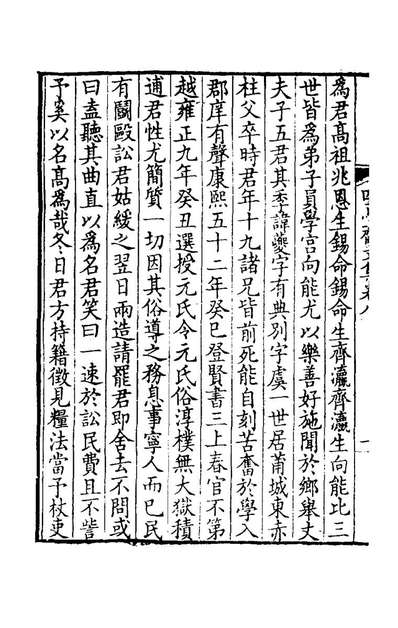 爲君高祖兆恩生錫命錫命生齊瀛齊瀛生向能比三
世皆爲弟子員學宮向能尤以樂善好施聞於鄉舉丈
夫子五君其季諱夔字有典別字虞一世居莆城東赤
柱父卒時君年十九諸兄皆前死能自刻苦奮於學入
郡庠有聲康熙五十二年癸巳登賢書三上春官不第
越雍正九年癸丑選授元氏令元氏俗淳樸無大獄積
逋君性尤簡質一切因其俗導之務息事寧人而已民
有鬭毆訟君姑緩之翌日兩造請罷君即舍去不問或
曰盍聽其曲直以爲名君笑曰一速於訟民費且不訾
予奚以名高爲哉冬日君方持籍徵見糧法當予杖吏